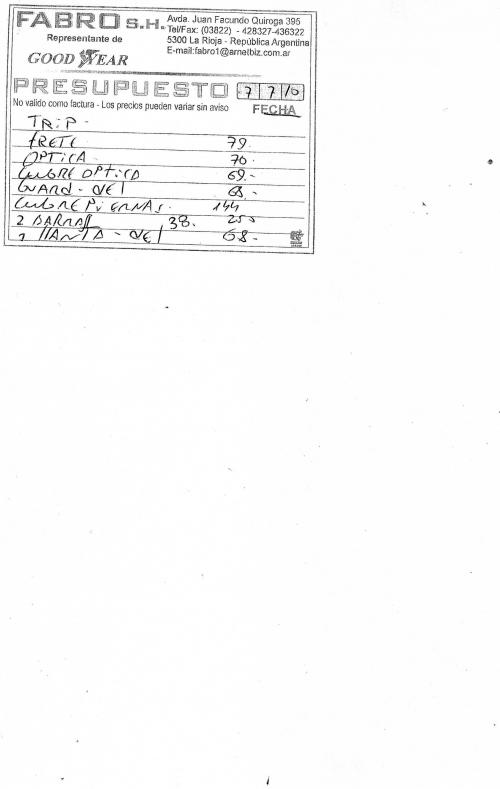 FABRO S.H.
Avda. Juan Facundo Quiroga 395
Tel/Fax: (03822) - 428327-436322
5300 La Rioja - República Argentina
E-mail:fabro1@arnetbiz.com.ar
Representante de
GOOD YEAR
PRESUPUESTO 7 7 10
No valido como factura - Los precios pueden variar sin aviso
FECHA
TRiP -
FRETE 79.
OPTiCA - 70.
CUBRE OPTiCO 69.-
GUARD - DEl 68.-
CUBRE PiERNAS. 144
2 BARRAS 38. 250
1 llANTA - DEl 68.-